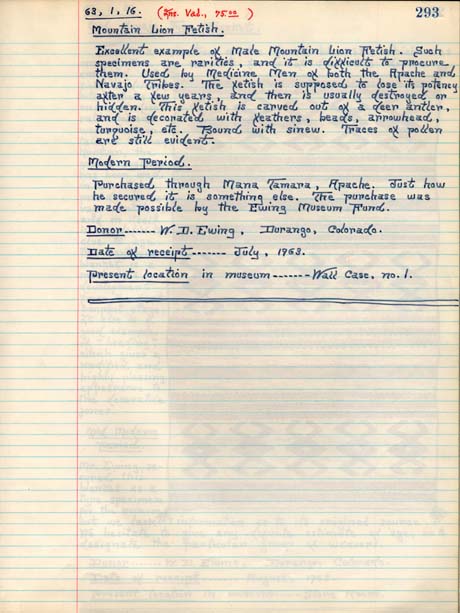 63, 1, 16. (Ins. Val., 75.00 ) 293
Mountain Lion Fetish.
Excellent example of Male Mountain Lion Fetish. Such
specimens are rarities, and it is difficult to procure
them. Used by Medicine Men of both the Apache and
Navajo Tribes. The fetish is supposed to lose its potency
after a few years, and then is usually destroyed or
hidden. This fetish is carved out of a deer antler,
and is decorated with feathers, beads, arrowhead,
turquoise, etc. Bound with sinew. Traces of pollen
are still evident.
Modern Period.
Purchased through Mana Tamara, Apache. Just how
he secured it is something else. The purchase was
made possible by the Ewing Museum Fund.
Donor------W. D. Ewing, Durango, Colorado.
Date of receipt------July, 1963.
Present location in museum------Wall Case, no. 1.